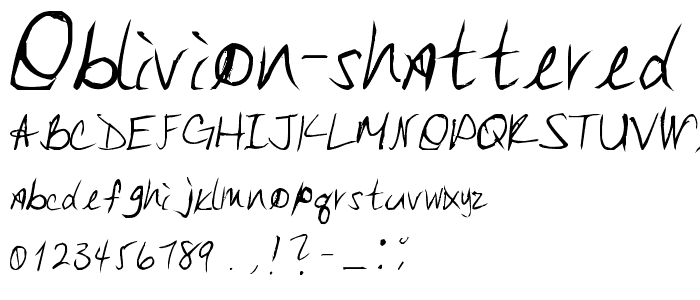 Oblivion-shattered
ABCDEFGHIJKLMNOPQRSTUVW
abcdefghijklmnopqrstuvwxyz
0123456789 .,!?-_:;